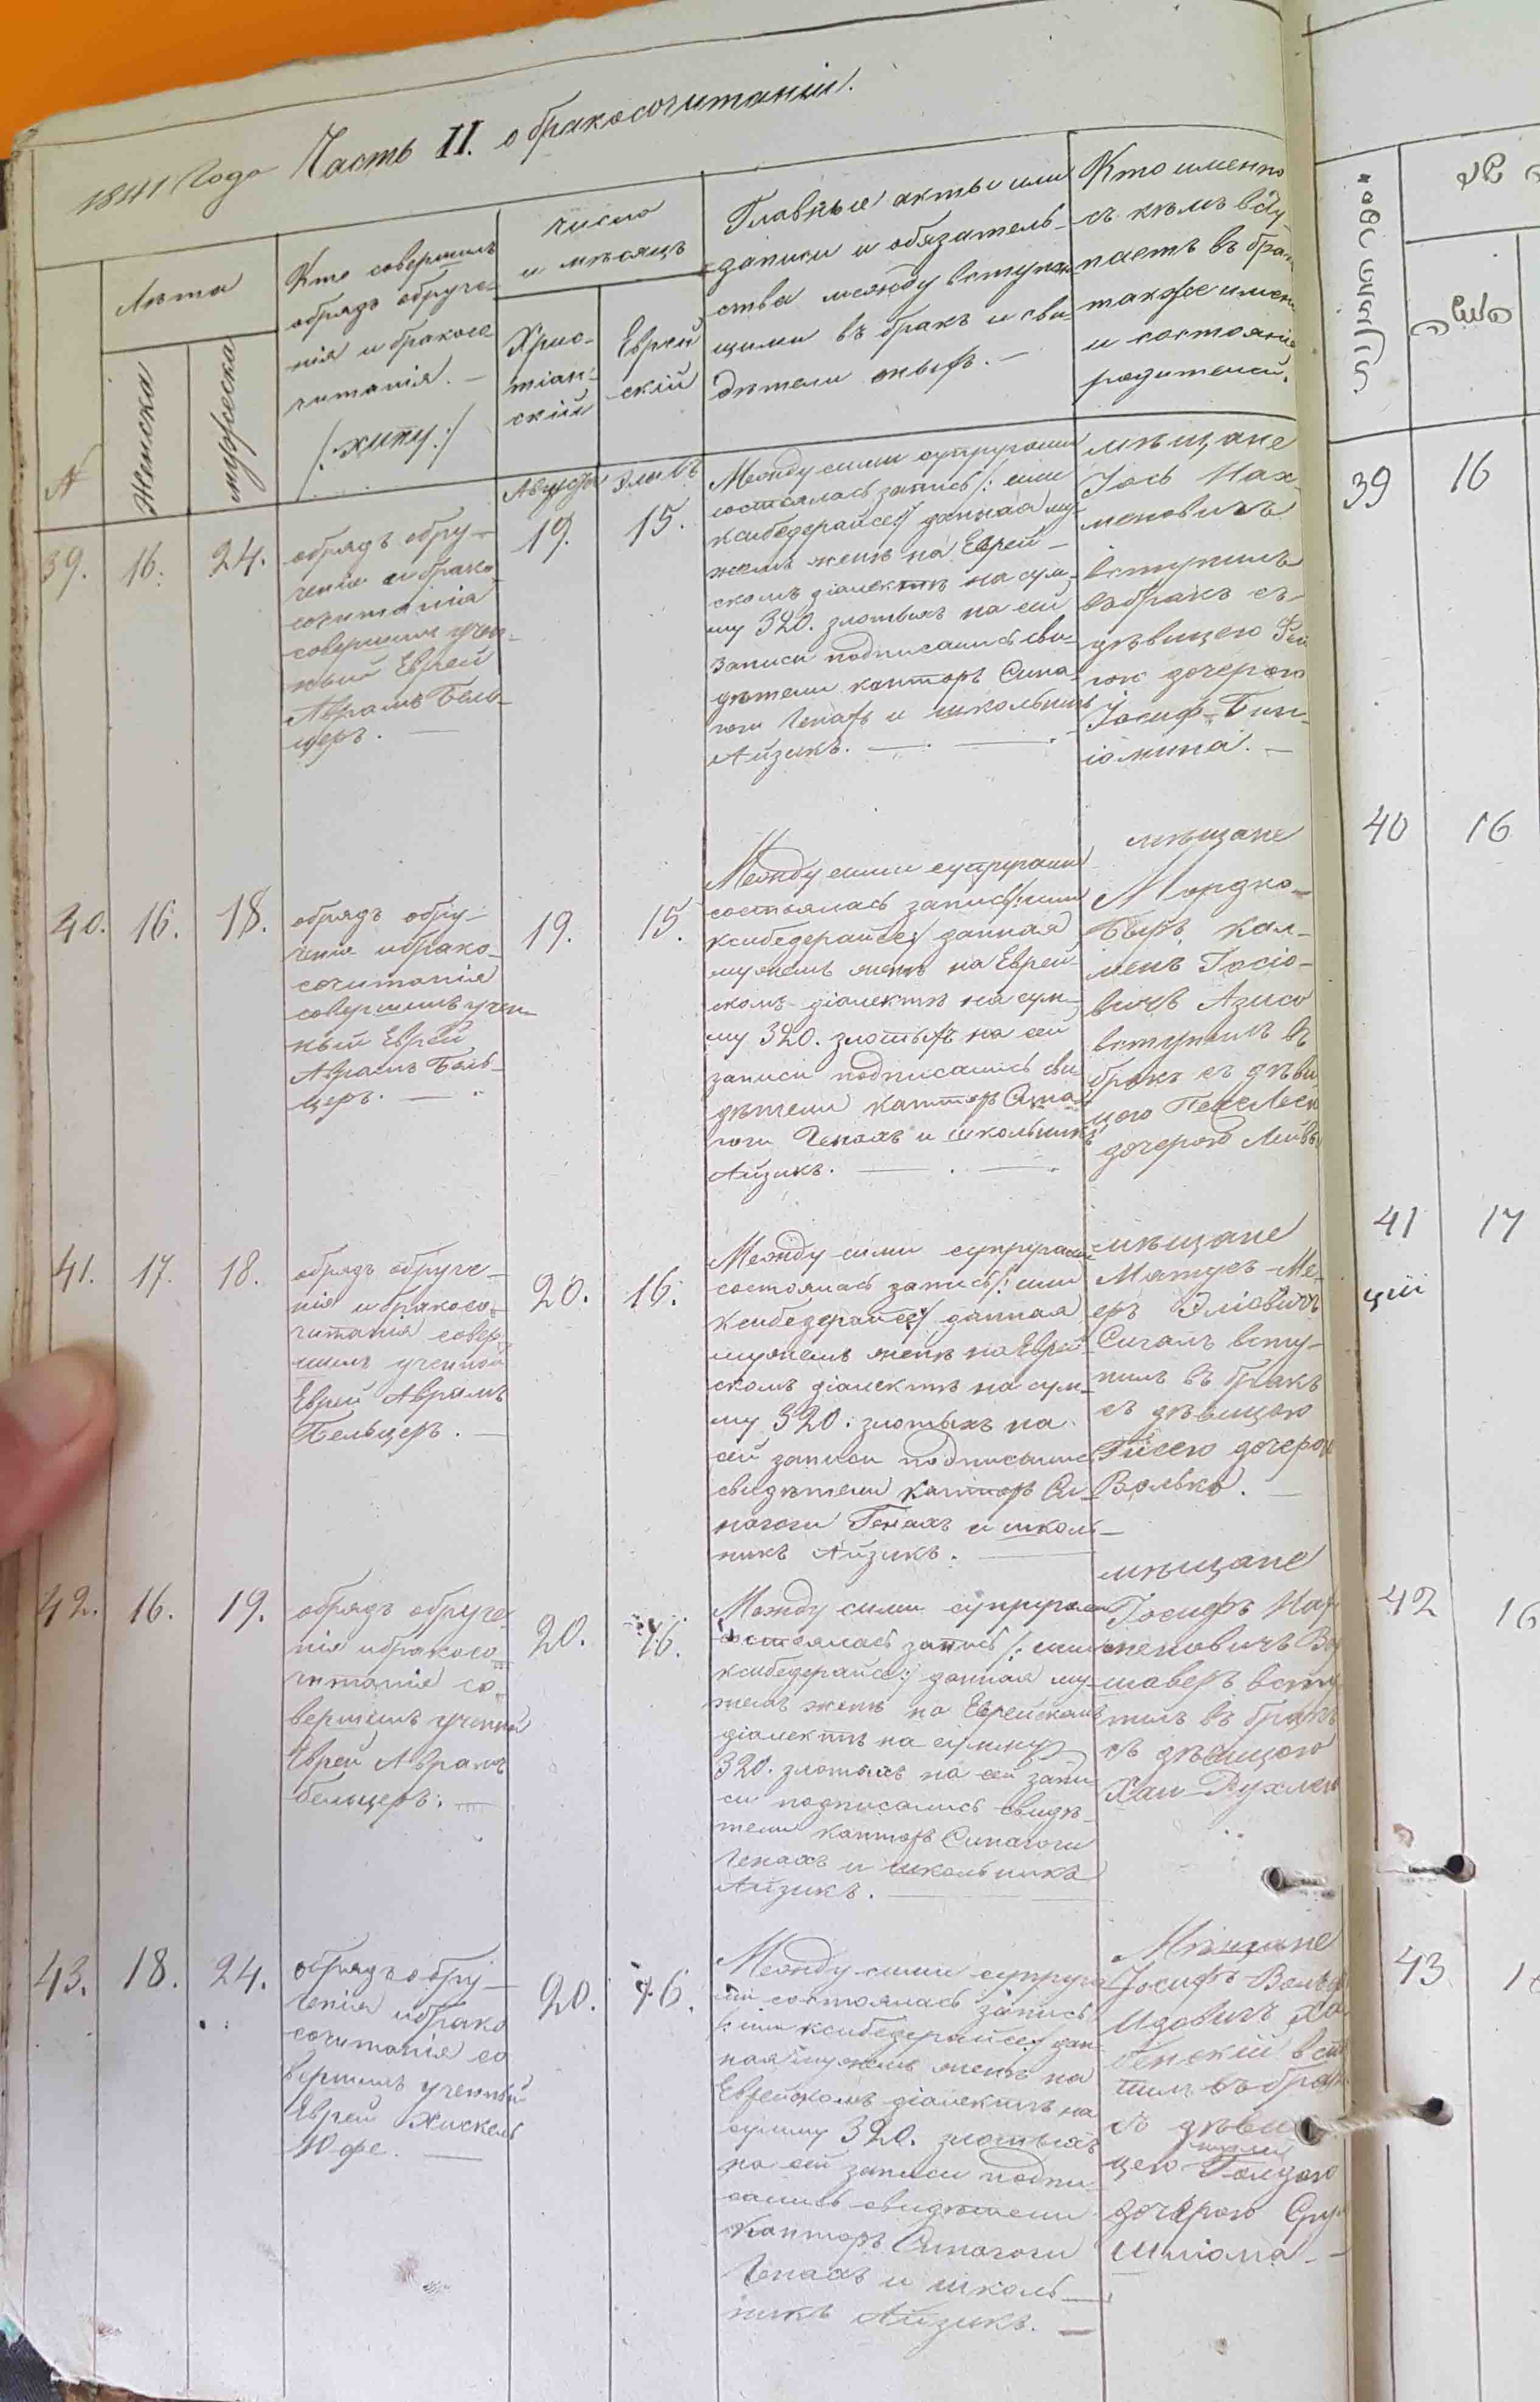 1841 Года Часть II. о бракосочитании.
№
Лѣта
Женска
мужеска
Кто совершилъ
обрядъ обруче-
нія и бракосо
читанія. —
/:хипу:/
число
и мѣсяцъ
Хрис-
тіан-
скій
Еврей
скій
Главные акты или
записи и обязатель-
ства между вступаю
щими въ бракъ и сви-
дѣтели оныхъ. —
Кто именно
съ кѣмъ всту
паетъ въ бра
также имен
и состояніе
родителей.
Августъ
Элюль
39.
16.
24.
обрядъ обру-
ченія и брако
сочитанія
совершилъ учен-
ный Еврей
Аврамъ Бель-
церъ. —
19.
15.
Между сими супругами
состоялась запись /: или
ксибедерайсе:/ данная му-
жемъ женѣ на Еврей-
скомъ діалектѣ на сум-
му 320. злотыхъ на сей
записи подписались сви-
дѣтели канторъ Сина-
гоги Генахъ и школьникъ
Айзикъ. —
мѣщане
Іось Нах-
меновичъ
вступилъ
въ бракъ съ
дѣвицею
дочерью
Іосиф-Бин-
іомина. —
40.
16.
18.
обрядъ обру-
ченія и брако-
сочитанія
совершилъ учен-
ный Еврей
Аврамъ Бель-
церъ. —
19.
15.
Между сими супругами
состоялась запись /: или
ксибедерайсе:/ данная
мужемъ женѣ на Еврей-
скомъ діалектѣ на сум-
му 320. злотыхъ на сей
записи подписались сви
дѣтели канторъ Сина
гоги Генахъ и школьникъ
Айзикъ. —
мѣщане
Мордко-
Беръ Кал-
менъ Іосіо-
вичъ
вступилъ въ
бракъ съ дѣви
цею
дочерью Лейбы
41.
17.
18.
обрядъ обруче-
нія и бракосо-
читанія совер-
шилъ ученной
Еврей Аврамъ
Бельцеръ. —
20.
16.
Между сими супругами
состоялась запись /: или
ксибедерайсе:/ данная
мужемъ женѣ на Еврей
скомъ діалектѣ на сум-
му 320. злотыхъ на
сей записи подписались
свидѣтели канторъ Си-
нагоги Генахъ и школь-
никъ Айзикъ. —
мѣщане
Матусъ-Ме-
еръ Эліовичъ
Сигалъ всту-
пилъ въ бракъ
съ дѣвицою
дочерою
Волько. —
42.
16.
19.
обрядъ обруче-
нія и бракосо
читанія со
вершилъ ученный
Еврей Аврамъ
бельцеръ. —
20.
16.
Между сими супругами
состоялась запись /: или
ксибедерайсе:/ данная му-
жемъ женѣ на Еврейскомъ
діалектѣ на сумму
320. злотыхъ на сей запи-
си подписались свидѣ-
тели канторъ Синагоги
Генахъ и школьникъ
Айзикъ. —
мѣщане
Іосифъ Нах
меновичъ
всту
пилъ въ бракъ
съ дѣвицою
Хаи-Рухлею
43.
18.
24.
обрядъ обру-
ченія и брако
сочитанія со
вершилъ ученный
Еврей Хискель
Юфе. —
20.
16.
Между сими супруга
ми состоялась запись
/: или ксибедерайсе:/ дан-
ная мужемъ женѣ на
Еврейскомъ діалектѣ на
сумму 320. злотыхъ
на сей записи подпи-
сались свидѣтели
Канторъ Синагоги
Генахъ и школь-
никъ Айзикъ. —
Мѣщане
Іосифъ
въ бра
съ дѣви
цею Голдою
дочерою Сру
Шліома. —
39
16
40
16
41
17
42
16
43